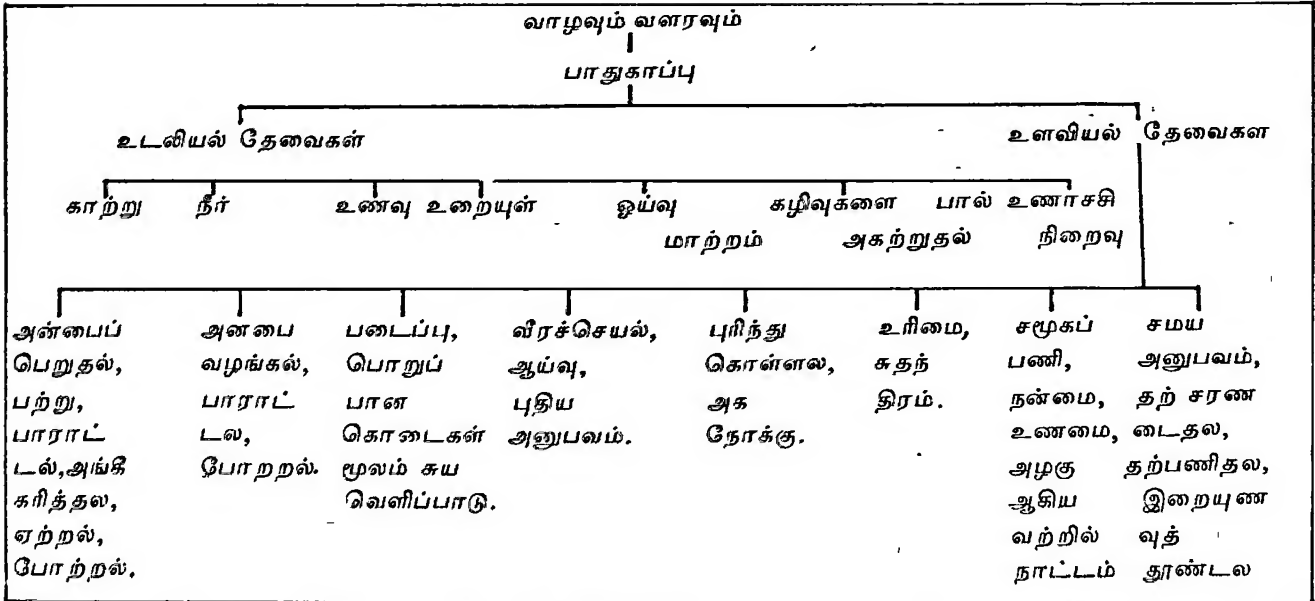 வாழவும் வளரவும்
பாதுகாப்பு
உடலியல் தேவைகள்
உளவியல் தேவைகள
காற்று நீர் உணவு உறையுள் ஓய்வு கழிவுகளை பால் உணாசசி
மாற்றம் அகற்றுதல் நிறைவு
அன்பைப்
பெறுதல்,
பற்று,
பாராட்
டல்,அங்கீ
கரித்தல,
ஏற்றல்,
போற்றல்.
அனபை
வழங்கல்,
பாராட்
டல,
போறறல்.
படைப்பு,
பொறுப்
பான
கொடைகள்
மூலம் சுய
வெளிப்பாடு.
வீரச்செயல்,
ஆய்வு,
புதிய
அனுபவம்.
புரிந்து
கொள்ளல,
அக
நோக்கு.
உரிமை,
சுதந்
திரம்.
சமூகப்
பணி,
நன்மை,
உணமை,
அழகு
ஆகிய
வற்றில்
நாட்டம்
சமய
அனுபவம்,
தற் சரண
டைதல,
தற்பணிதல,
இறையுண
வுத்
தூண்டல